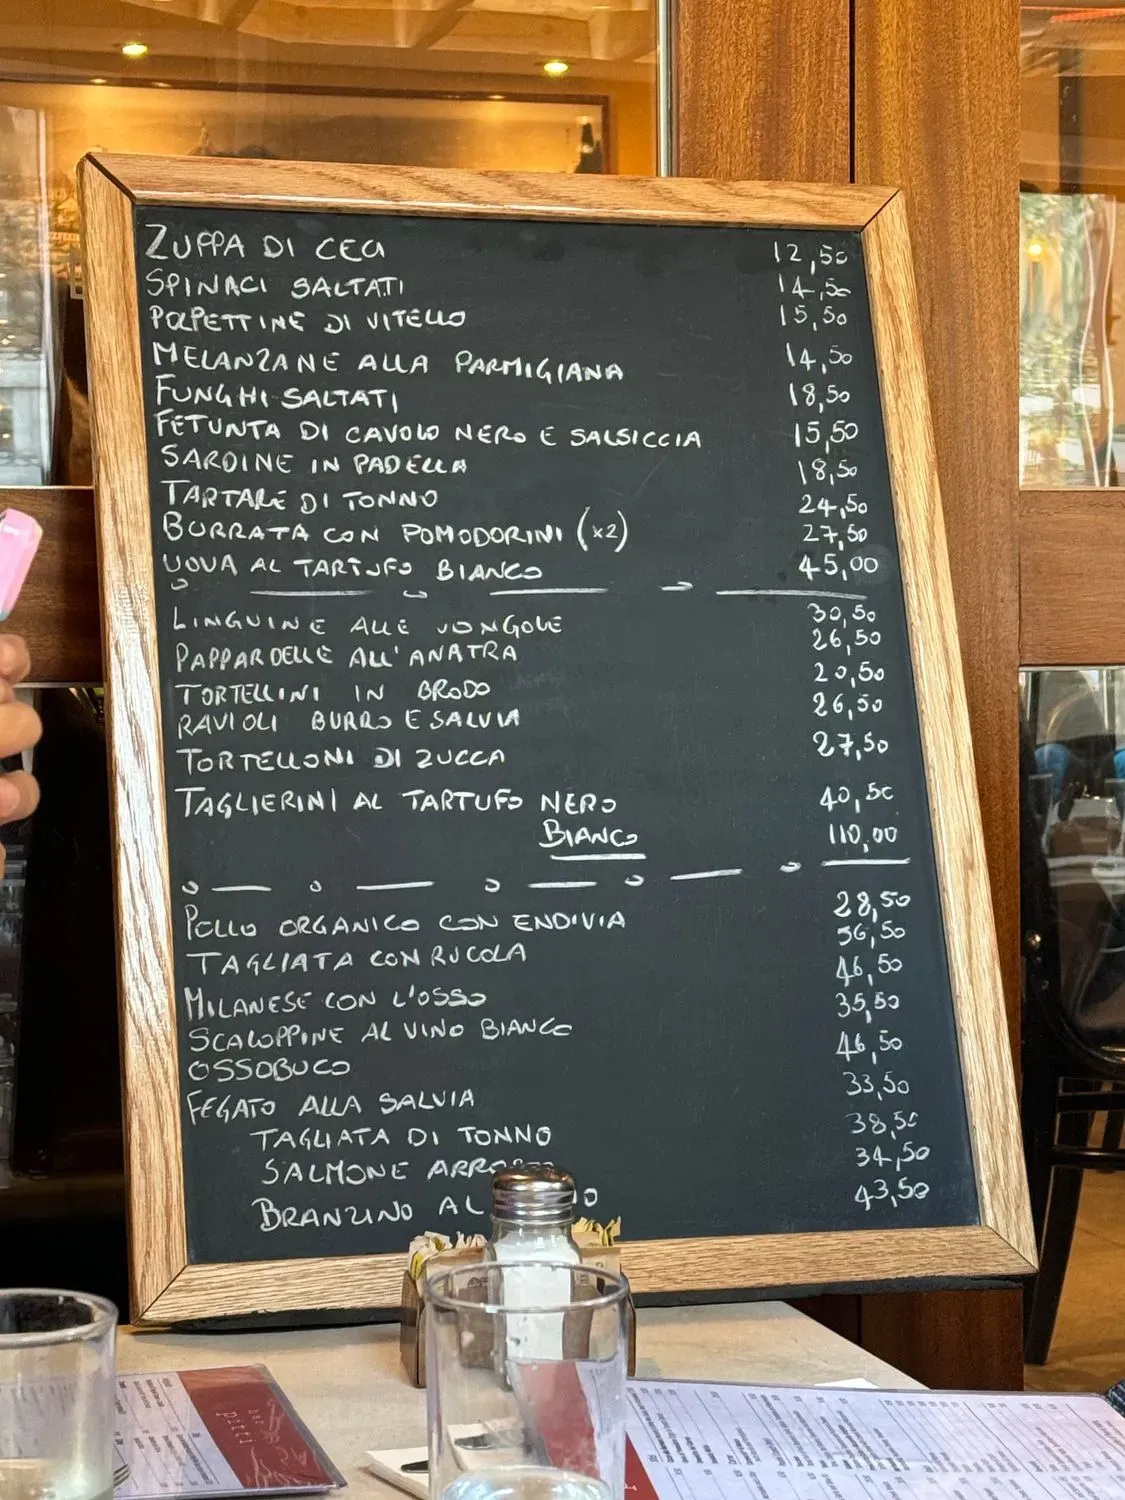 ZUPPA DI CECI 12,50
SPINACI SALTATI 14,50
POLPETTINE DI VITELLO 15,50
MELANZANE ALLA PARMIGIANA 14,50
FUNGHI SALTATI 18,50
FETUNTA DI CAVOLO NERO E SALSICCIA 15,50
SARDINE IN PADELLA 18,50
TARTARE DI TONNO 24,50
BURRATA CON POMODORINI (x2) 27,50
UOVA AL TARTUFO BIANCO 45,00
LINGUINE ALLE VONGOLE 30,50
PAPPARDELLE ALL'ANATRA 26,50
TORTELLINI IN BRODO 20,50
RAVIOLI BURRO E SALVIA 26,50
TORTELLONI DI ZUCCA 27,50
TAGLIERINI AL TARTUFO NERO 40,50
BIANCO 110,00
POLLO ORGANICO CON ENDIVIA 28,50
TAGLIATA CON RUCOLA 56,50
MILANESE CON L'OSSO 46,50
SCALOPPINE AL VINO BIANCO 35,50
OSSOBUCO 46,50
FEGATO ALLA SALVIA 33,50
TAGLIATA DI TONNO 38,50
SALMONE 34,50
BRANZINO AL 43,50
bar pitti